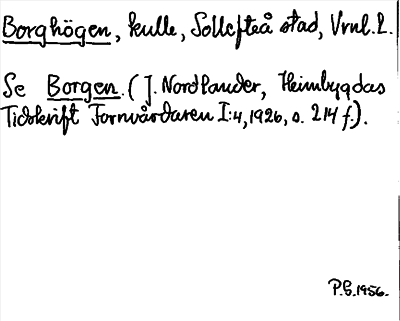 Borghögen, kulle, Sollefteå stad, Vrml.L.
Se Borgen. (J. Nordlander, Heimbygdas
Tidskrift Fornvårdaren I:4, 1926, s. 214 f.).
P.S. 1956.